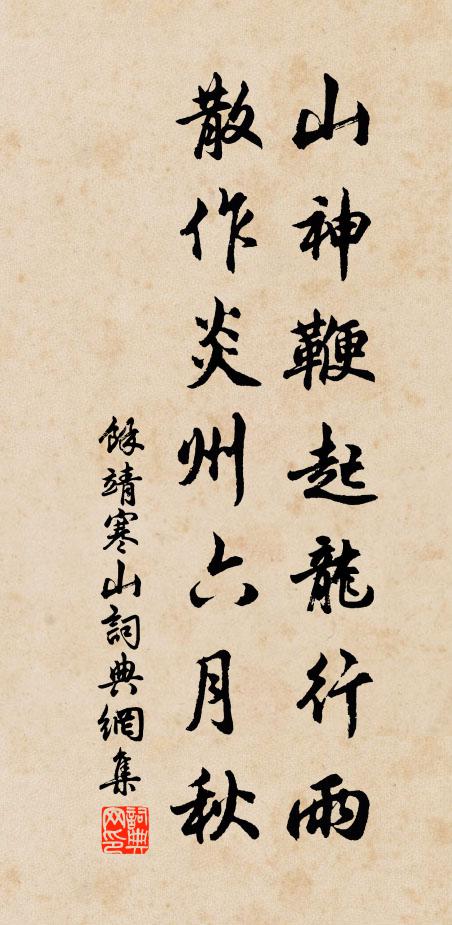 山神鞭起龍行雨
散作炎州六月秋
餘靖寒山詞典網集
詞典网印